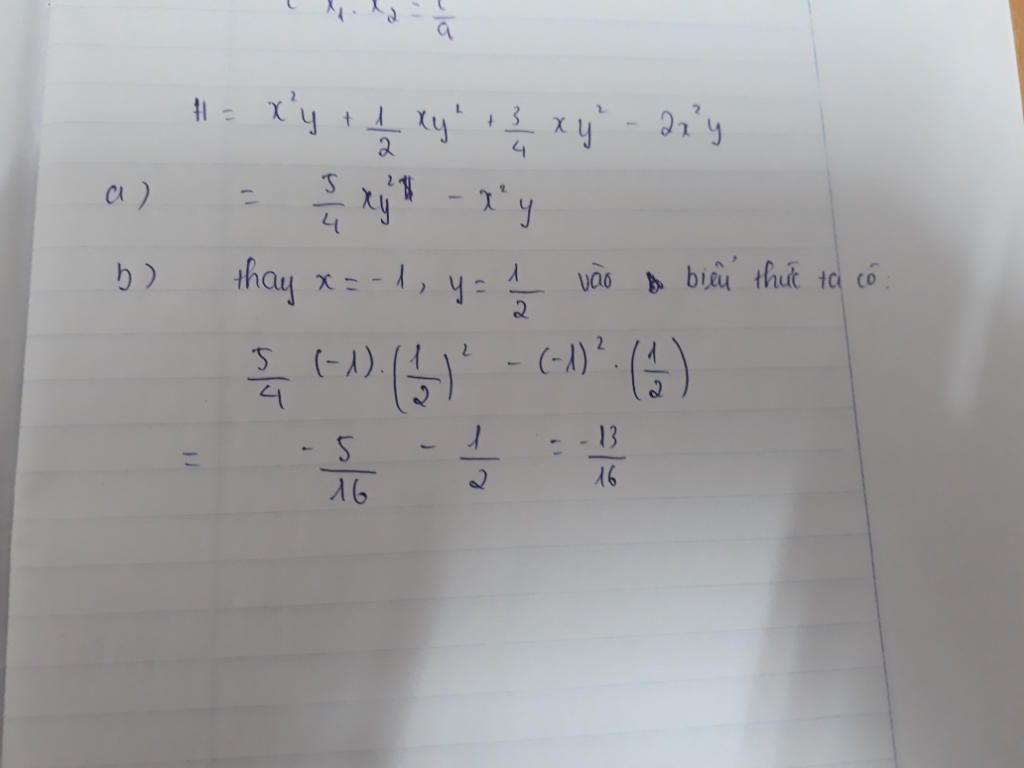 x₁. x₂ = c/a
H = x²y + 1/2 xy² + 3/4 xy² - 2x²y
a) = 5/4 xy² - x²y
b) thay x = -1, y = 1/2 vào biểu thức ta có:
5/4 (-1).(1/2)² - (-1)².(1/2)
= -5/16 - 1/2 = -13/16